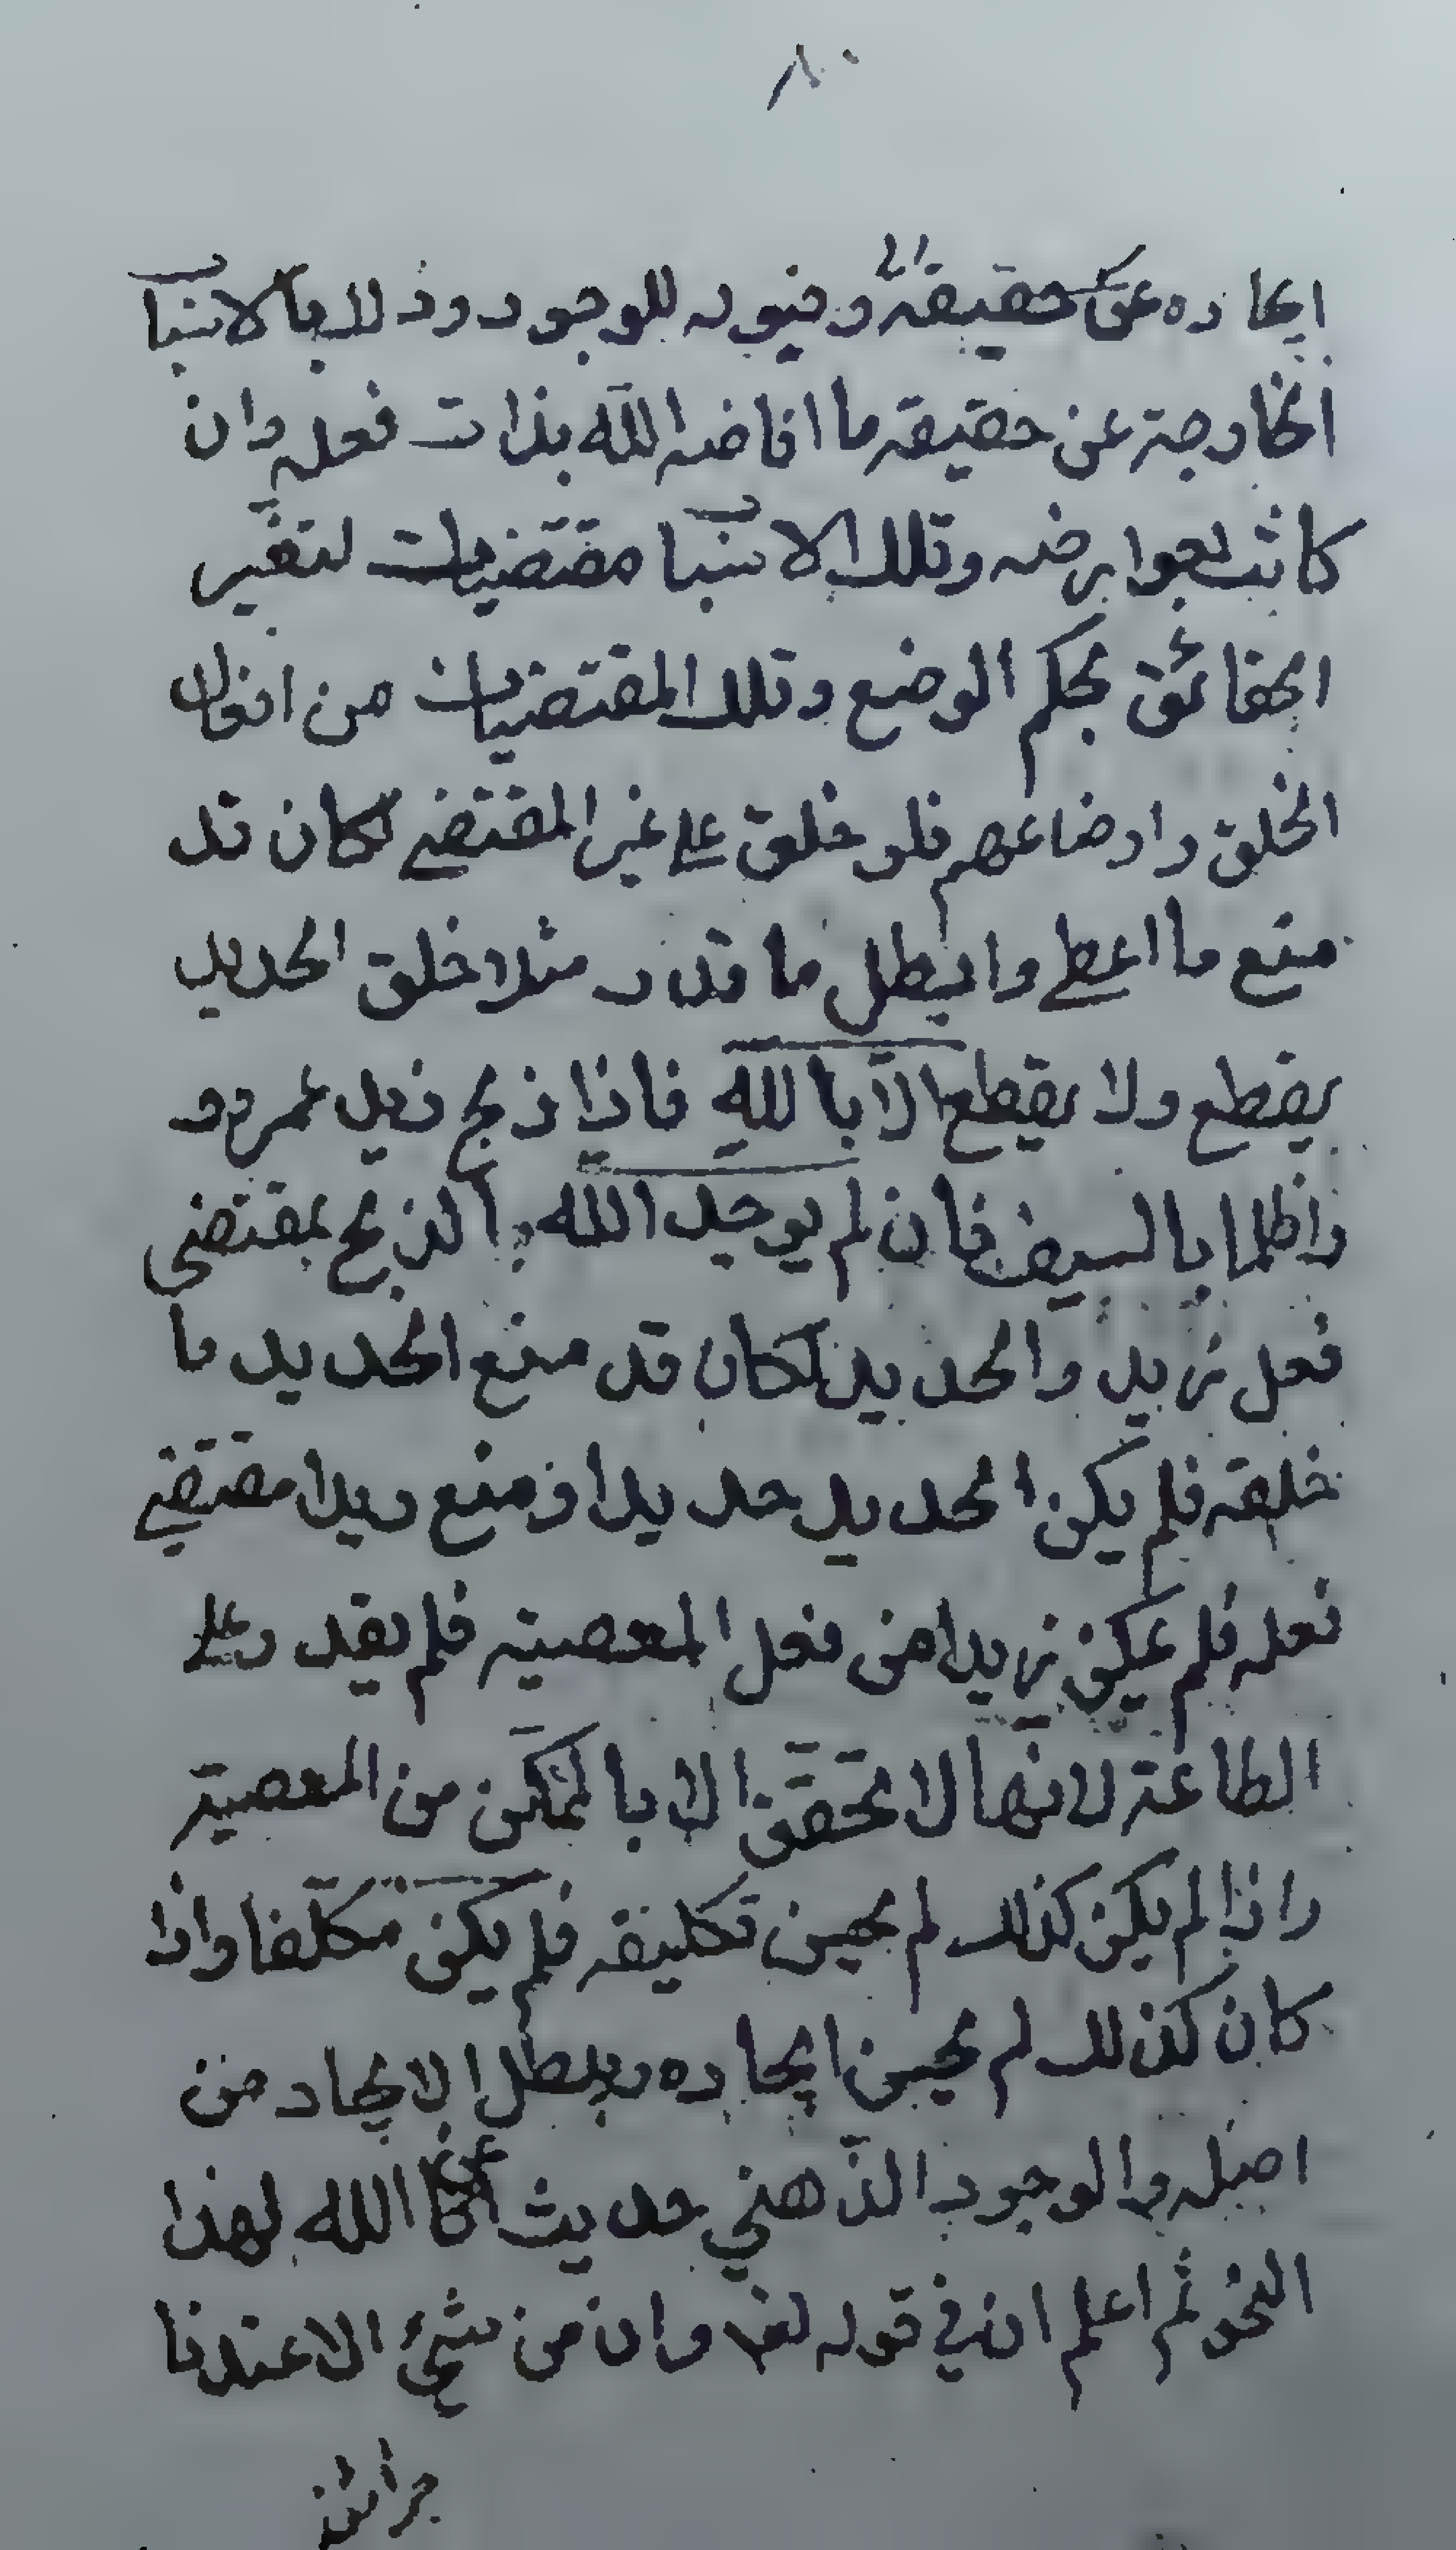 ٨٠
ايجاده على حقيقته وقبوله للوجود وذلك بالاسباب
الخارجة عن حقيقة ما افاضه الله بذات فعله وان
كانت لعوارضه وتلك الاسباب مقتضيات لتغير
الحقائق بحكم الوضع وتلك المقتضيات من افعال
الخلق واوضاعهم فلو خلق على غير المقتضى لكان قد
منع ما اعطى وابطل ما قدر مثلا خلق الحديد
يقطع ولا يقطع الا بالله فاذا ذبح زيد عمروو
واظلما بالسيف فان لم يوجد الله الذبح بمقتضى
فعل زيد والحديد لكان قد منع الحديد ما
خلقه فلم يكن الحديد حديدا ومنع زيدا مقتضى
فعله فلم يمكن زيدا من فعل المعصية فلم يقدر على
الطاعة لانها لا تحقق الا بالتمكن من المعصية
واذا لم يكن كذلك لم يحسن تكليفه فلم يكن مكلّفا واذا
كان كذلك لم يحسن ايجاده ويبطل الايجاد من
اصله والوجود الذهني حديث عن الله لهذا
النحو ثم اعلم ان في قوله تعالى وان من شيئ الا عندنا
خزائنه